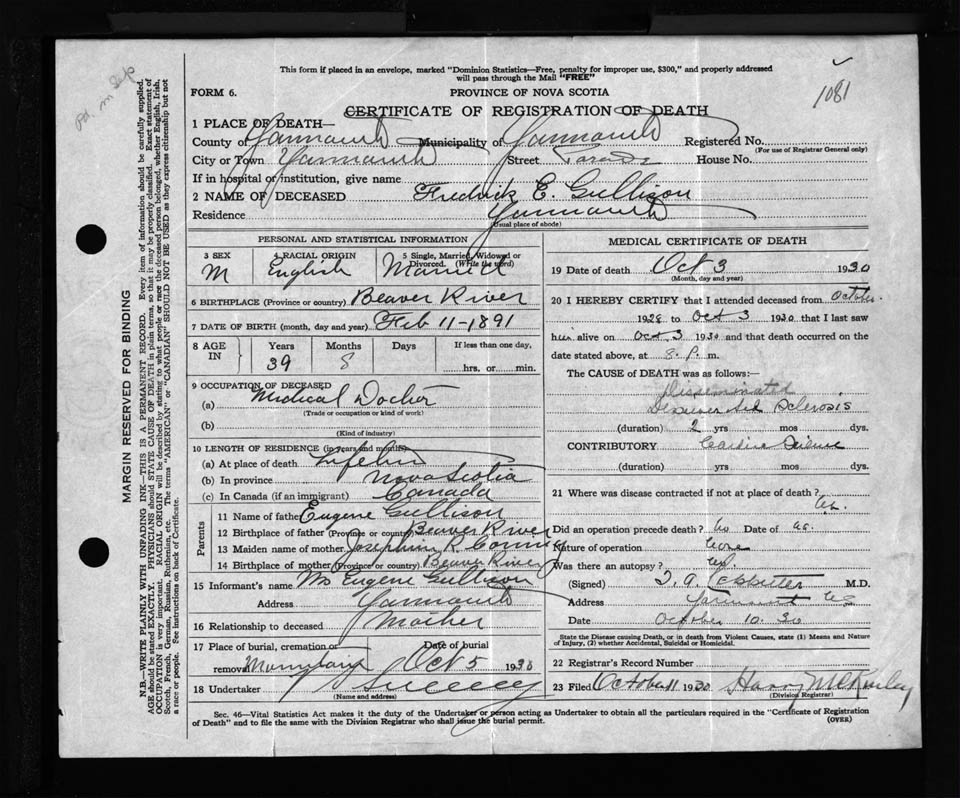 This form if placed in an envelope, marked "Dominion Statistics—Free, penalty for improper use, $300," and properly addressed
will pass through the Mail "FREE"
FORM 6.
PROVINCE OF NOVA SCOTIA
1081
CERTIFICATE OF REGISTRATION OF DEATH
1 PLACE OF DEATH—
County of Yarmouth Municipality of Yarmouth Registered No.
(For use of Registrar General only)
City or Town Yarmouth Street Parade House No.
If in hospital or institution, give name
2 NAME OF DECEASED Fredrick E. Gullison
Residence Yarmouth
(Usual place of abode)
PERSONAL AND STATISTICAL PARTICULARS
3 SEX 4 RACIAL ORIGIN 5 Single, Married, Widowed or Divorced. (Write the word)
M English Married
6 BIRTHPLACE (Province or country) Beaver River
7 DATE OF BIRTH (month, day and year) Feb 11-1891
8 AGE IN Years Months Days If less than one day,
39 8 hrs. or min.
9 OCCUPATION OF DECEASED
(a) Medical Docter
(Trade or occupation or kind of work)
(b)
(Kind of industry)
10 LENGTH OF RESIDENCE (in years and months)
(a) At place of death
(b) In province Nova Scotia
(c) In Canada (if an immigrant) Canada
Parents
11 Name of father Eugene Gullison
12 Birthplace of father (Province or country) Beaver River
13 Maiden name of mother Josephine R.
14 Birthplace of mother (Province or country) Beaver River
15 Informant's name Eugene Gullison
Address Yarmouth
16 Relationship to deceased Mother
17 Place of burial, cremation or removal Date of burial
Oct 5 1930
18 Undertaker
(Name and address)
MEDICAL CERTIFICATE OF DEATH
19 Date of death Oct 3 1930
(Month, day and year)
20 I HEREBY CERTIFY that I attended deceased from October
1928 to Oct 3 1930 that I last saw
him alive on Oct 3 1930 and that death occurred on the
date stated above, at 8. P. m.
The CAUSE of DEATH was as follows:—
Disseminated
Sclerosis
(duration) 2 yrs mos dys.
CONTRIBUTORY
(duration) yrs mos dys.
21 Where was disease contracted if not at place of death?
Did an operation precede death? No Date of
Nature of operation None
Was there an autopsy?
(Signed) M.D.
Address
Date October 10. 30
State the Disease causing Death, or in death from Violent Causes, state (1) Means and Nature
of Injury, (2) whether Accidental, Suicidal or Homicidal.
22 Registrar's Record Number
23 Filed October 11 1930 Harry
(Division Registrar)
Sec. 46—Vital Statistics Act makes it the duty of the Undertaker or person acting as Undertaker to obtain all the particulars required in the "Certificate of Registration
of Death" and to file the same with the Division Registrar who shall issue the burial permit.
(OVER)
MARGIN RESERVED FOR BINDING
N.B.—WRITE PLAINLY WITH UNFADING INK—THIS IS A PERMANENT RECORD. Every item of information should be carefully supplied.
AGE should be stated EXACTLY. PHYSICIANS should STATE CAUSE OF DEATH in plain terms, so that it may be properly classified. Exact statement of
OCCUPATION is very important. RACIAL ORIGIN will be described by stating to what people or race the deceased person belonged, whether English, Irish,
Scotch, French, German, Russian, Ruthenian, etc. The terms "AMERICAN" or "CANADIAN" SHOULD NOT BE USED as they express citizenship but not
a race or people. See instructions on back of Certificate.